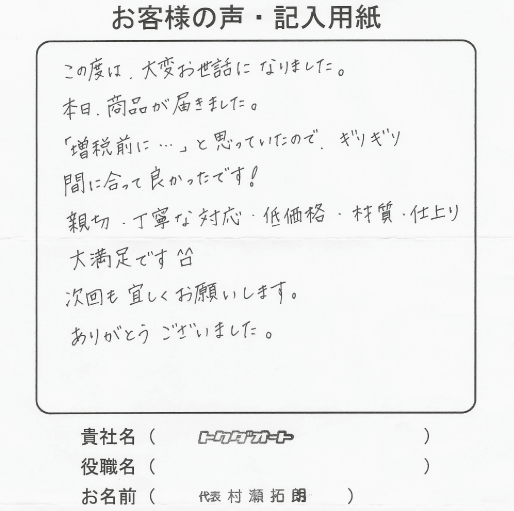 お客様の声・記入用紙
この度は、大変お世話になりました。
本日、商品が届きました。
「増税前に…」と思っていたので、ギリギリ
間に合って良かったです!
親切・丁寧な対応・低価格・材質・仕上り
大満足です^^
次回も宜しくお願いします。
ありがとうございました。
貴社名（ トクダオート ）
役職名（ ）
お名前（ 代表 村瀬拓朗 ）